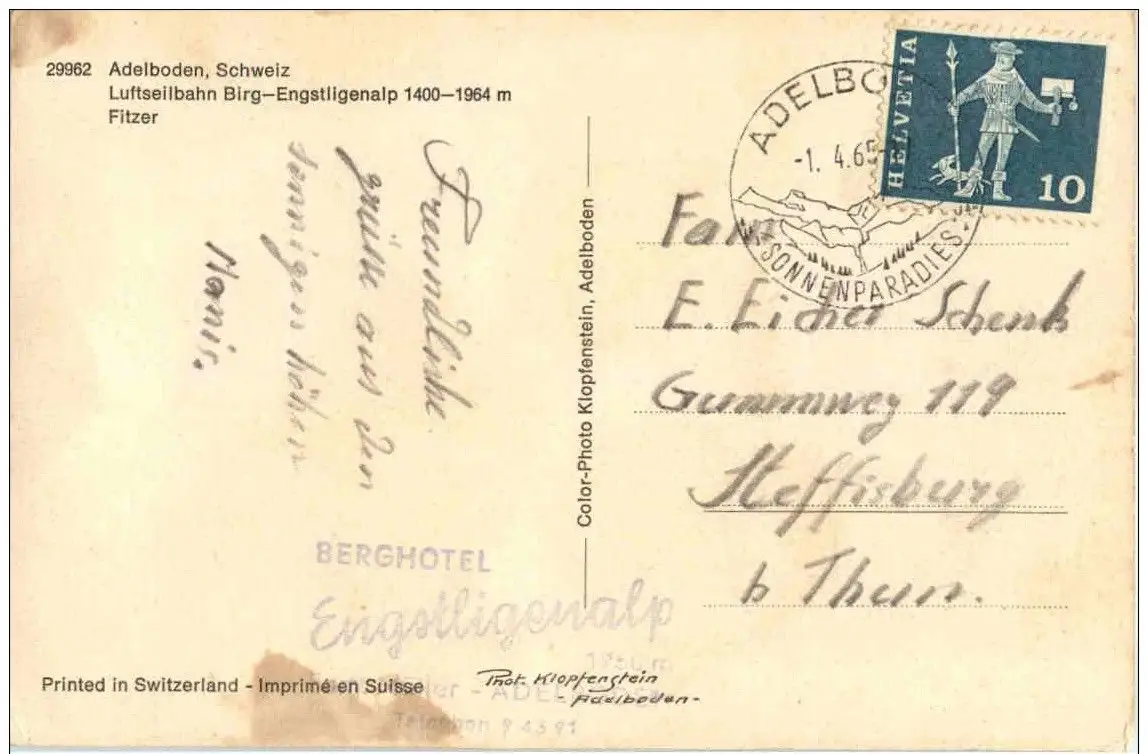 29962 Adelboden, Schweiz
Luftseilbahn Birg–Engstligenalp 1400–1964 m
Fitzer
Freundliche
grüsse aus den
sonnigen höhen
BERGHOTEL
Engstligenalp
- ADELBODEN
Telephon 9 43 91
Printed in Switzerland - Imprimé en Suisse
Phot. Klopfenstein
- Adelboden -
Color-Photo Klopfenstein, Adelboden
ADELBO
-1. 4.65
SONNENPARADIES
HELVETIA
10
Fam
E. Eicher Schenk
Gummweg 119
Steffisburg
b Thun.